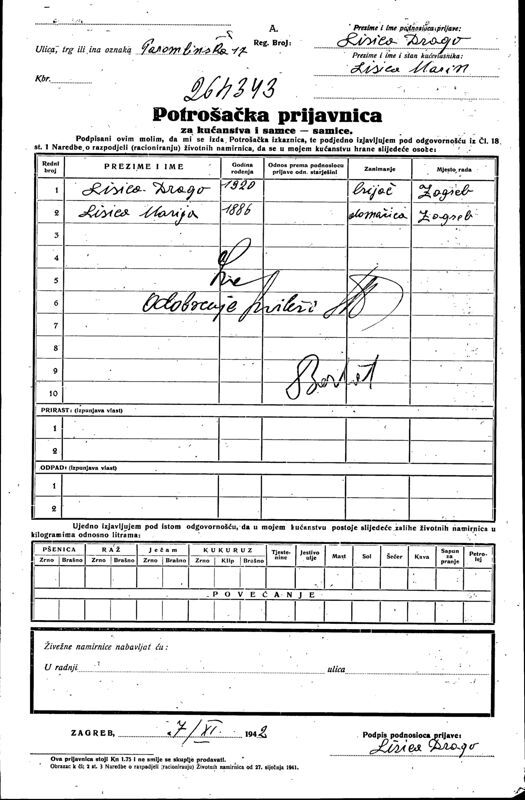 A.
Ulica, trg ili ina oznaka Paromlinska 17
Reg. Broj:
Prezime i ime podnosioca prijave:
Lisica Drago
Prezime i ime i stan kućevlasnika:
Lisica Marin
Kbr.
264343
Potrošačka prijavnica
za kućanstva i samce — samice.
Podpisani ovim molim, da mi se izda Potrošačka izkaznica, te podjedno izjavljujem pod odgovornošću iz Čl. 18
st. 1 Naredbe o razpodjeli (racioniranju) životnih namirnica, da se u mojem kućanstvu hrane slijedeće osobe:
Redni broj PREZIME I IME Godina rodjenja Odnos prema podnosiocu prijave odn. starješini Zanimanje Mjesto rada
1 Lisica Drago 1920 brijač Zagreb
2 Lisica Marija 1886 domaćica Zagreb
3
4
5
6 Odobrenje
7
8
9
10
PRIRAST: (Izpunjava vlast)
1
2
ODPAD: (Izpunjava vlast)
1
2
Ujedno izjavljujem pod istom odgovornošću, da u mojem kućanstvu postoje slijedeće zalihe životnih namirnica u
kilogramima odnosno litrama:
PŠENICA RAŽ Ječam KUKURUZ Tjestenine Jestivo ulje Mast Sol Šećer Kava Sapun za pranje Petrolej
Zrno Brašno Zrno Brašno Zrno Brašno Zrno Klip Brašno
POVEĆANJE
Živežne namirnice nabavljat ću:
U radnji ulica
ZAGREB, 7/XI. 1942
Podpis podnosioca prijave:
Lisica Drago
Ova prijavnica stoji Kn 1.75 i ne smije se skuplje prodavati.
Obrazac k čl. 2 st. 3 Naredbe o razpodjeli (racioniranju) Životnih namirnica od 27. siječnja 1941.